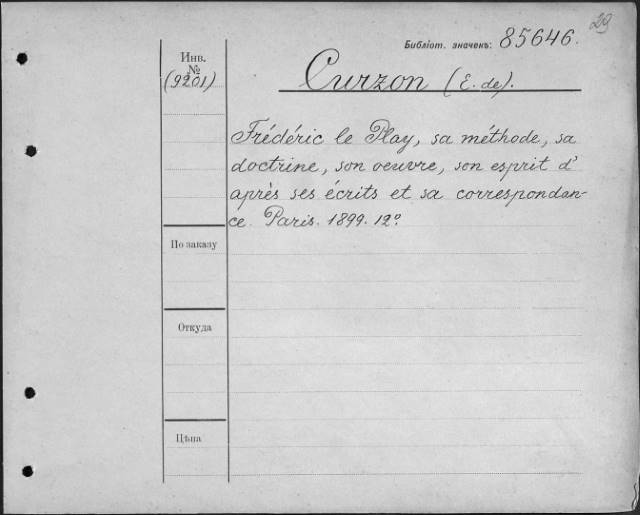 29
Библіот. значекъ: 85646.
Инв.
№
(9201)
Curzon (E. de).
Frédéric le Play, sa méthode, sa
doctrine, son oeuvre, son esprit d'
après ses écrits et sa correspondan-
ce. Paris. 1899. 12º.
По заказу
Откуда
Цѣна